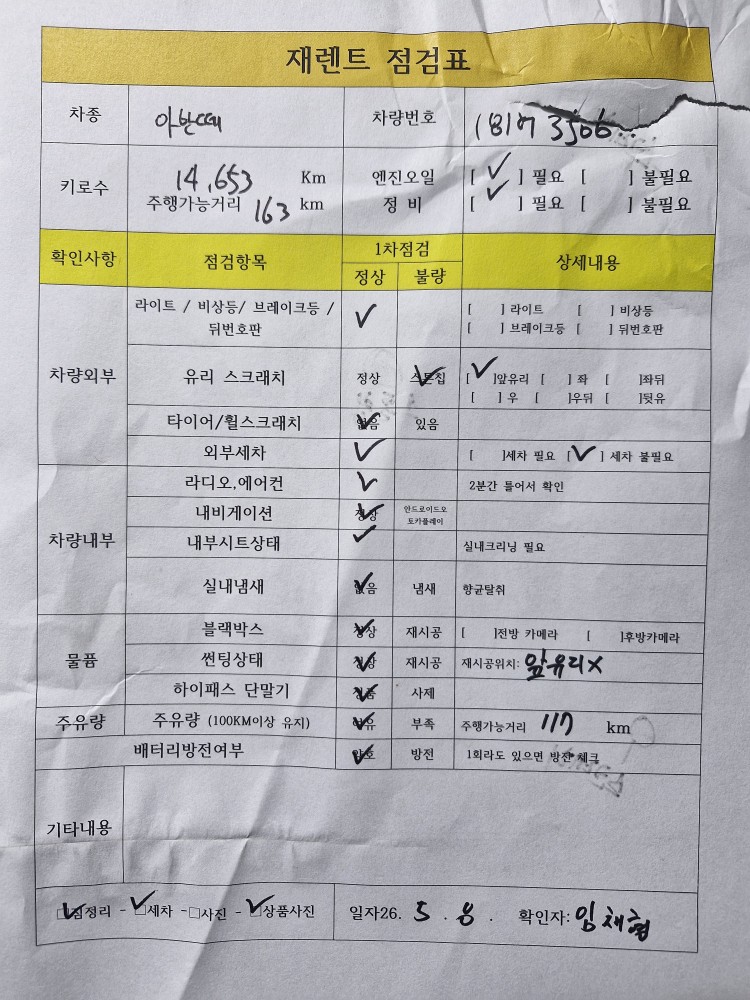 재렌트 점검표
차종 아반떼 차량번호
키로수 14,653 Km 엔진오일 [ ✓ ] 필요 [ ] 불필요
주행가능거리 163 km 정 비 [ ✓ ] 필요 [ ] 불필요
확인사항 점검항목 1차점검 상세내용
정상 불량
차량외부
라이트 / 비상등/ 브레이크등 / ✓ [ ] 라이트 [ ] 비상등
뒤번호판 [ ] 브레이크등 [ ] 뒤번호판
유리 스크래치 정상 스톤칩 ✓ [ ✓ ]앞유리 [ ] 좌 [ ]좌뒤
[ ] 우 [ ]우뒤 [ ]뒷유
타이어/휠스크래치 없음 ✓ 있음
외부세차 ✓ [ ]세차 필요 [ ✓ ] 세차 불필요
차량내부
라디오,에어컨 ✓ 2분간 틀어서 확인
내비게이션 정상 ✓ 안드로이드오
토카플레이
내부시트상태 ✓ 실내크리닝 필요
실내냄새 없음 ✓ 냄새 향균탈취
물품
블랙박스 정상 ✓ 재시공 [ ]전방 카메라 [ ]후방카메라
썬팅상태 정상 ✓ 재시공 재시공위치: 앞유리 X
하이패스 단말기 정품 ✓ 사제
주유량 주유량 (100KM이상 유지) 여유 ✓ 부족 주행가능거리 117 km
배터리방전여부 양호 ✓ 방전 1회라도 있으면 방전 체크
기타내용
☑짐정리 - ☑세차 - □사진 - ☑상품사진 일자26. 5 . 8 . 확인자: 임채형